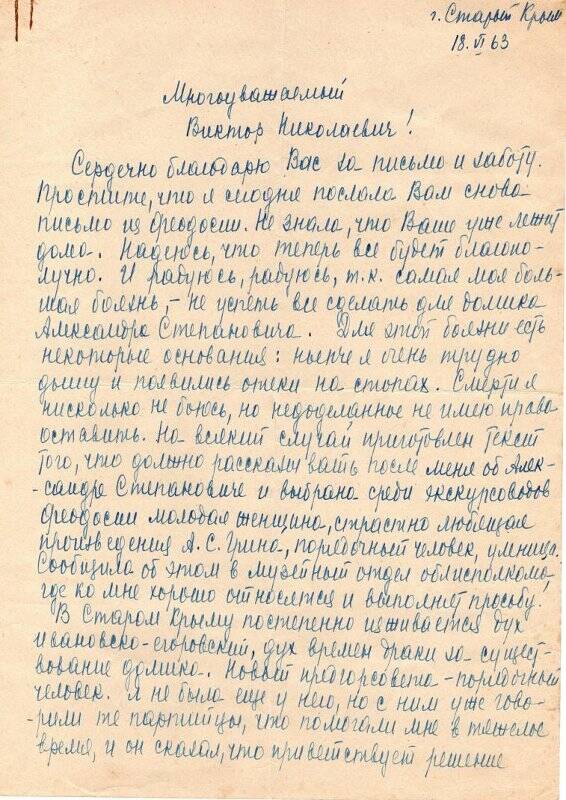 г. Старый Крым
18.VI 63
Многоуважаемый
Виктор Николаевич!
Сердечно благодарю Вас за письмо и заботу.
Простите, что я сегодня послала Вам снова
письмо из Феодосии. Не знала, что Ваше уже лежит
дома. Надеюсь, что теперь все будет благопо-
лучно. И радуюсь, радуюсь, т.к. самая моя боль-
шая боязнь, – не успеть все сделать для домика
Александра Степановича. Для этой боязни есть
некоторые основания: нынче я очень трудно
дышу и появились отеки на стопах. Смерти я
нисколько не боюсь, но недоделанное не имею права
оставить. На всякий случай приготовлен текст
того, что должно рассказывать после меня об Алек-
-сандре Степановиче и выбрана среди экскурсоводов
Феодосии молодая женщина, страстно любящая
произведения А.С. Грина, порядочный человек, умница.
Сообщила об этом в музейный отдел облисполкома,
где ко мне хорошо относятся и выполнят просьбу.
В Старом Крыму постепенно изживается дух
ивановско-егоровский, дух времен драки за сущест-
вование домика. Новый предгорсовета – порядочный
человек. Я не была еще у него, но с ним уже гово-
рили те партийцы, что помогали мне в тяжелое
время, и он сказал, что приветствует решение